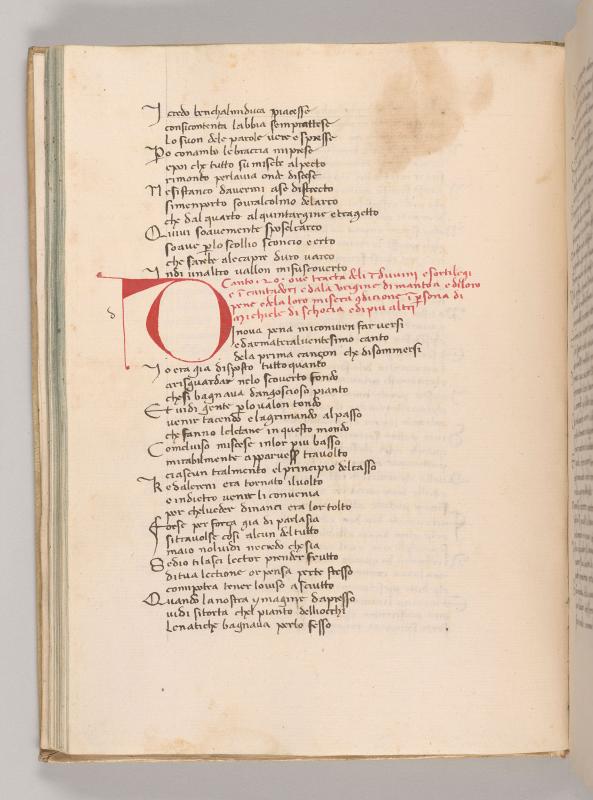 I credo benchalminduca piacesse
consicontenta labbia semprattese
Lo suon dele parole vere espresse
Po conambo lebraccia miprese
epoi che tutto su misebe alpecto
rimonto perlavia onde discese
Nesistanco davermi ase distrecto
simenporto sovralcolmo delarco
che dal quarto alquintargine etragetto
Quivi soavemente sposelcarco
soave plo scollio sconcio eerto
che sarebe alecapre duro varco
Indi unaltro vallon mifuscoverto
Canto: 20: ove tracta deli idivini esortilegi
e icantadori edala vrigine di mantoa edi loro
pene edela loro misera ɔdicione i psona di
Michiele di schocia edi piu altri
d
D
I nova pena miconven far versi
edarmatera lventesimo canto
dela prima cançon che disommersi
Io era gia disposto tuttoquanto
arisguardar nelo scoverto fondo
chesi bagnava dangoscioso pianto
Et vidi gente plo valon tondo
venir tacendo elagrimando alpasso
che fanno leletane inquesto mondo
Comelviso miscese inlor piu basso
mirabilmente apparve travolto
ciascun tralmento elprincipio delcasso
Ke dalereni era tornato ilvolto
eindietro venir li convenia
per chelveder dinanci era lor tolto
Forse per força gia di parlasia
sitravolse cosi alcun deltutto
maio nolvidi necredo chesia
Sedio tilasci lector prender frutto
ditua lectione or pensa perte stesso
comipotea tener loviso asciutto
Quando lanostra ymagine dapresso
vidi sitorta chel pianto delliocchi
Lenatiche bagnava perlo fesso